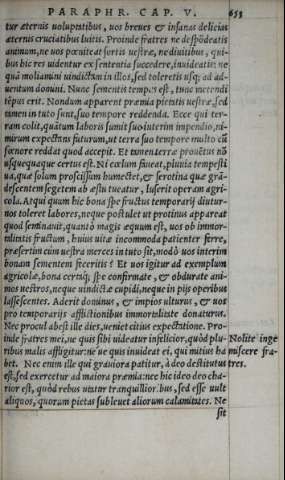 PARAPHR. CAP. V. 653
tur æternis uoluptatibus, uos breues & insanas delicias
æternis cruciatibus luitis. Proinde fratres ne despōdeatis
animum, ne uos pœniteat sortis uestræ, ne diuitibus, qui-
bus hic res uidentur ex sententia succedere, inuideatis: ne
quid moliamini uindictæ in illos, sed toleretis usq; ad ad-
uentum domini. Nunc sementis tempus est, tunc metendi
tēpus erit. Nondum apparent præmia pietatis uestræ, sed
tamen in tuto sunt, suo tempore reddenda. Ecce qui ter-
ram colit, quātum laboris sumit suo interim impendio, ni-
mirum expectans futurum, ut terra suo tempore multo cū
fœnore reddat quod accepit. Et tamen terræ prouētus nō
usquequaque certus est. Ni cœlum faueat, pluuia tempesti
ua, quæ solum proscissum humectet, & serotina quæ grā-
descentem segetem ab æstu tueatur, luserit operam agri-
cola. At qui quum hic bona spe fructus temporarij diutur-
nos toleret labores, neque postulet ut protinus appareat
quod seminauit, quanto magis æquum est, uos ob immor-
talitatis fructum, huius uitæ incommoda patienter ferre,
præsertim cum uestra merces in tuto sit, modo uos interim
bonam sementem feceritis? Et uos igitur ad exemplum
agricolæ, bona certaq; spe confirmate, & obdurate ani-
mos uestros, neque uindictæ cupidi, neque in pijs operibus
lassescentes. Aderit dominus, & impios ulturus, & uos
pro temporarijs afflictionibus immortalitate donaturus.
Nec procul abest ille dies, ueniet citius expectatione. Pro-
inde fratres mei, ne quis sibi uideatur infelicior, quòd plu-
ribus malis affligitur: ne ue quis inuideat ei, qui mitius ha
bet. Nec enim ille qui grauiora patitur, à deo destitutus
est, sed exercetur ad maiora præmia: nec hic ideo deo cha-
rior est, quòd rebus utatur tranquillioribus, sed esse uult
aliquos, quorum pietas subleuet aliorum calamitates. Ne
sit
Nolite inge
miscere fra-
tres.